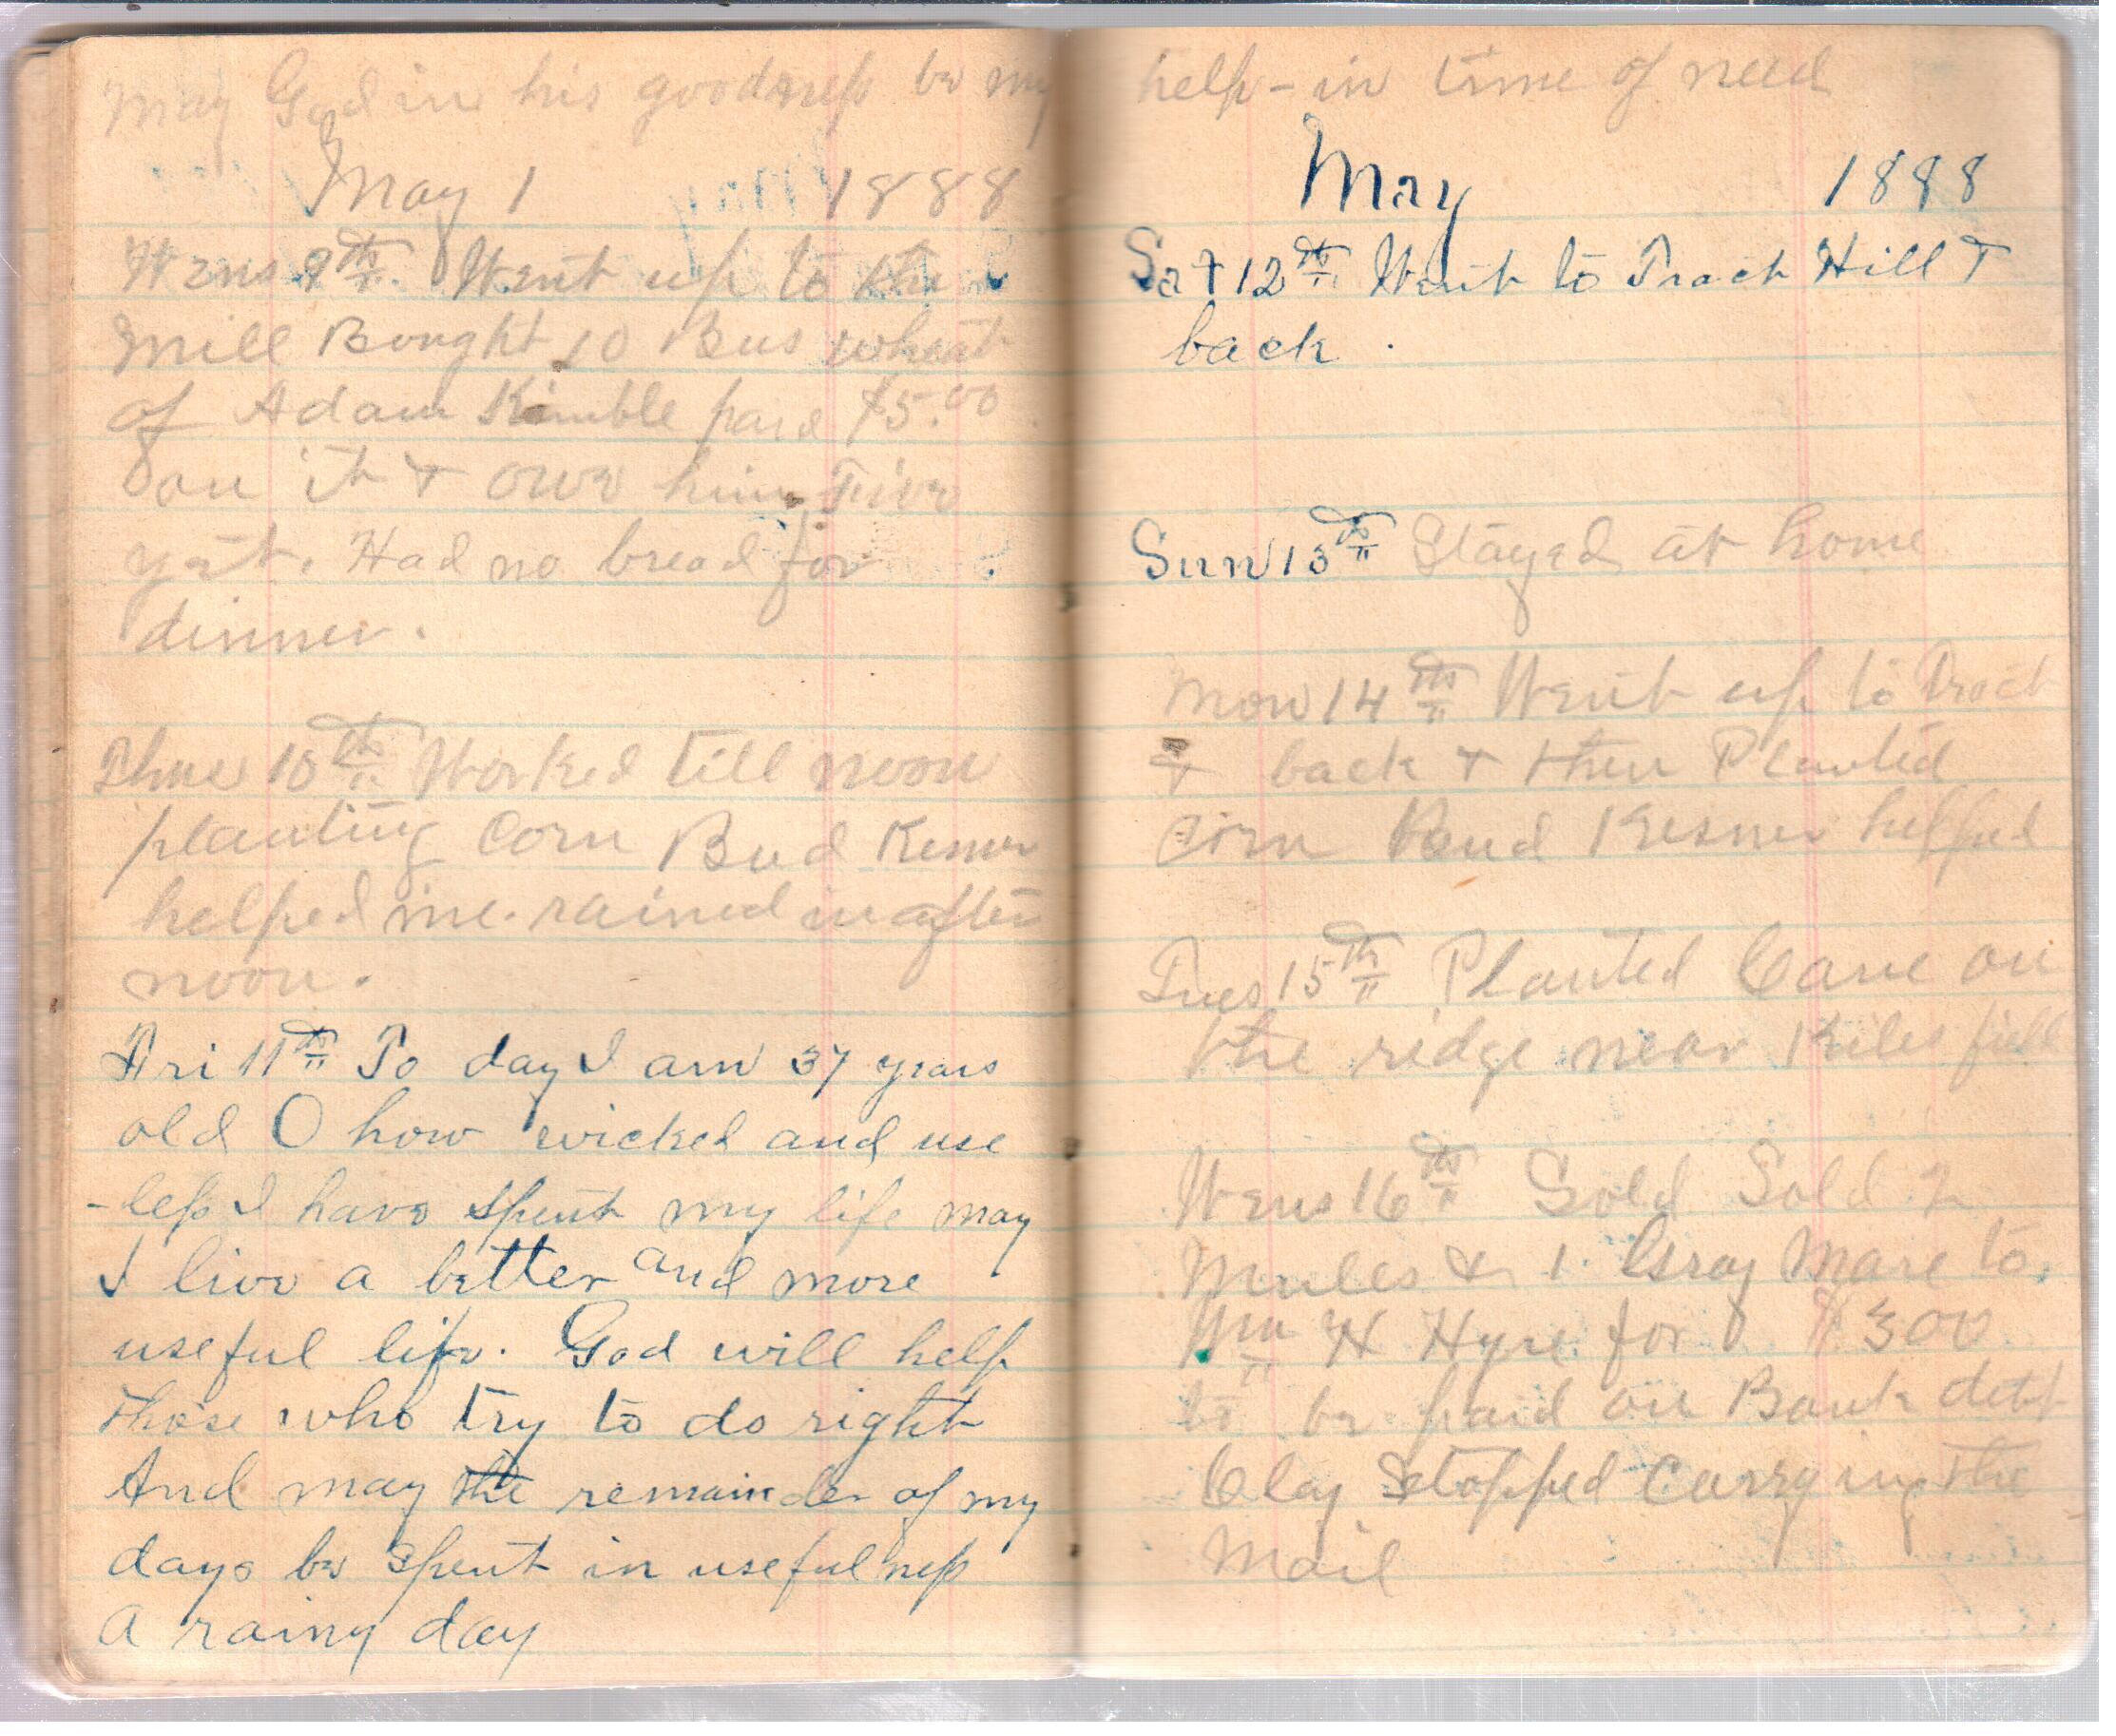 May God in his goodness be my
May 1 1888
Wens 9th. Went up to the
Mill Bought 10 Bus wheat
of Adam Kimble paid $5.00
on it & owe him Five
yet. Had no bread for
dinner.
Thus 10th Worked till noon
planting Corn Bud Kesner
helped me. rained in after
noon.
Fri 11th To day I am 37 years
old O how wicked and use
-less I have spent my life may
I live a better and more
useful life. God will help
those who try to do right
And may the remainder of my
days be spent in usefulness
A rainy day
help - in time of need
May 1888
Sat 12th Went to Tract Hill &
back.
Sun 13th Stayed at home
Mon 14th Went up to Tract
& back & then Planted
Corn Bud Kesner helped
Tues 15th Planted Cane on
the ridge near Kiles field
Wens 16th Sold Sold 2
Mules & 1. Gray Mare to
Wm H Hyre for $300
to be paid on Bank debt
Clay Stopped Carrying the
Mail